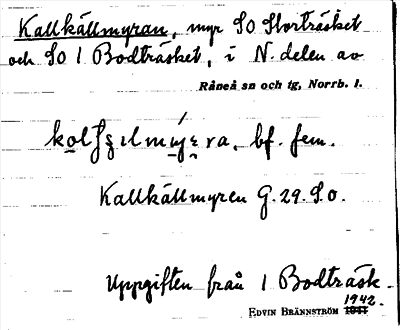 Kallkällmyran, myr SO Storträsket
och SO 1 Bodträsket, i N. delen av
Råneå sn och tg, Norrb. l.
bf. fem.
Kallkällmyren G. 29. S.O.
Uppgiften från 1 Bodträsk.
1942.
EDVIN BRÄNNSTRÖM 1941